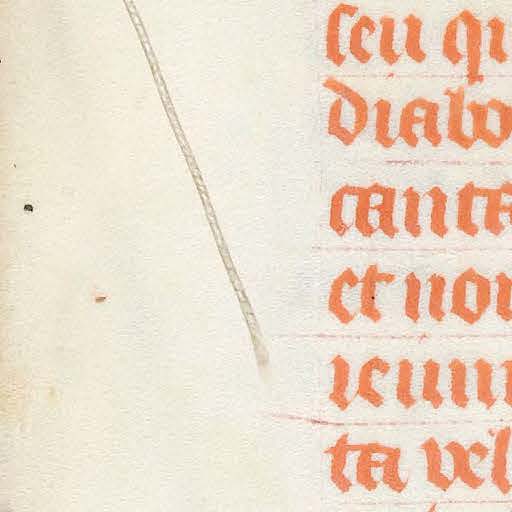 seu qu
diabo
canta
et non
ieiun
ta vel